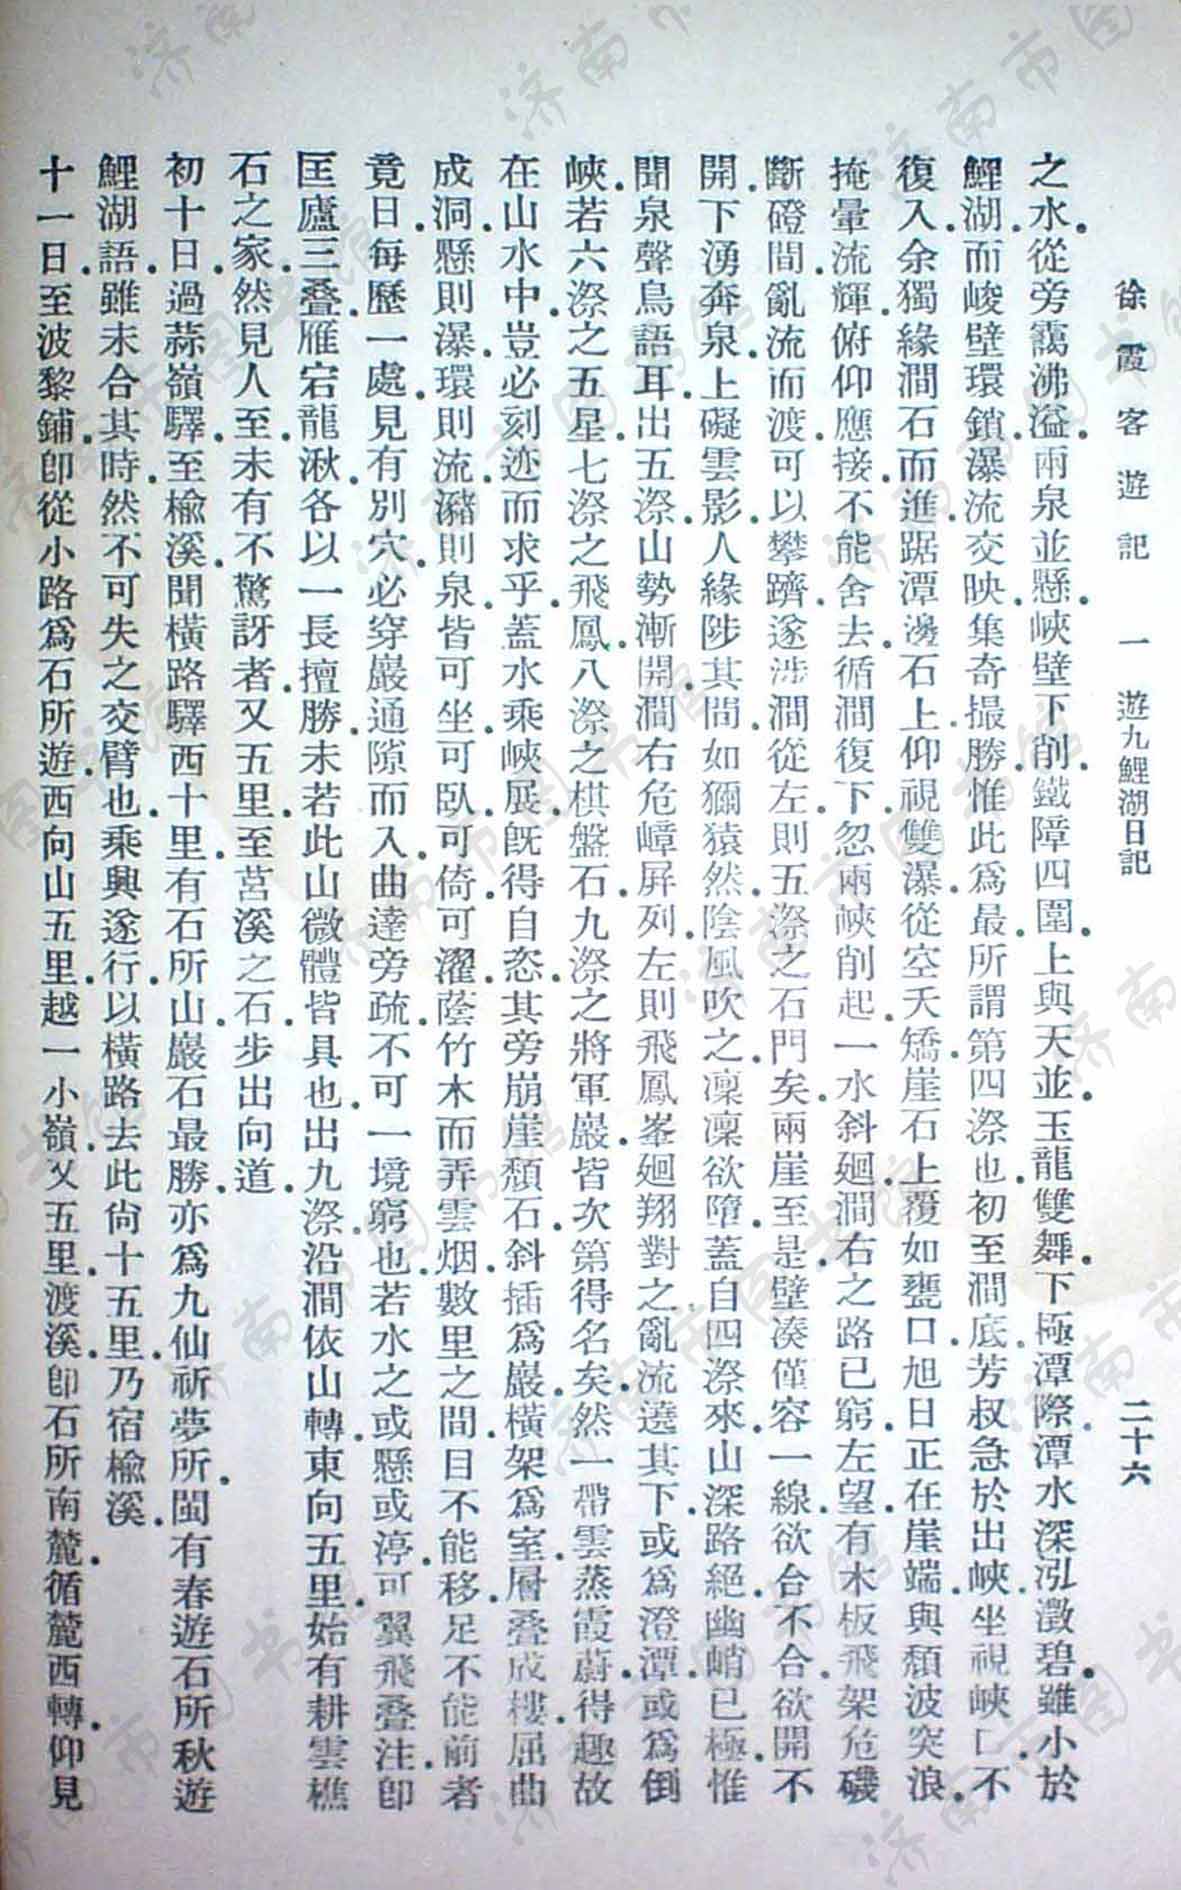 徐霞客遊記　一　遊九鯉湖日記　二十六
之水從旁靄沸溢兩泉並懸峽壁下削鐵障四圍上與天並玉龍雙舞下極潭際潭水深泓澂碧雖小於
鯉湖而峻壁環鎖瀑流交映集奇撮勝惟此爲最所謂第四漈也初至澗底芳叔急於出峽坐視峽口不
復入余獨緣澗石而進踞潭邊石上仰視雙瀑從空夭矯崖石上覆如甕口旭日正在崖端與頹波突浪
掩暈流輝俯仰應接不能舍去循澗復下忽兩峽削起一水斜廻澗右之路已窮左望有木板飛架危磯
斷磴間亂流而渡可以攀躋遂涉澗從左則五漈之石門矣兩崖至是壁湊僅容一線欲合不合欲開不
開下湧奔泉上礙雲影人緣陟其間如獼猿然陰風吹之凜凜欲墮蓋自四漈來山深路絕幽峭已極惟
聞泉聲鳥語耳出五漈山勢漸開澗右危嶂屏列左則飛鳳峯廻翔對之亂流遶其下或爲澄潭或爲倒
峽若六漈之五星七漈之飛鳳八漈之棋盤石九漈之將軍巖皆次第得名矣然一帶雲蒸霞蔚得趣故
在山水中豈必刻迹而求乎蓋水乘峽展旣得自恣其旁崩崖頹石斜插爲巖橫架爲室層叠成樓屈曲
成洞懸則瀑環則流瀦則泉皆可坐可臥可倚可濯蔭竹木而弄雲烟數里之間目不能移足不能前者
竟日每歷一處見有別穴必穿巖通隙而入曲達旁疏不可一境窮也若水之或懸或渟可翼飛叠注卽
匡廬三叠雁宕龍湫各以一長擅勝未若此山微體皆具也出九漈沿澗依山轉東向五里始有耕雲樵
石之家然見人至未有不驚訝者又五里至莒溪之石步出向道
初十日過蒜嶺驛至楡溪聞橫路驛西十里有石所山巖石最勝亦爲九仙祈夢所閩有春遊石所秋遊
鯉湖語雖未合其時然不可失之交臂也乘興遂行以橫路去此尙十五里乃宿楡溪
十一日至波黎鋪卽從小路爲石所遊西向山五里越一小嶺又五里渡溪卽石所南麓循麓西轉仰見
济南市图书馆